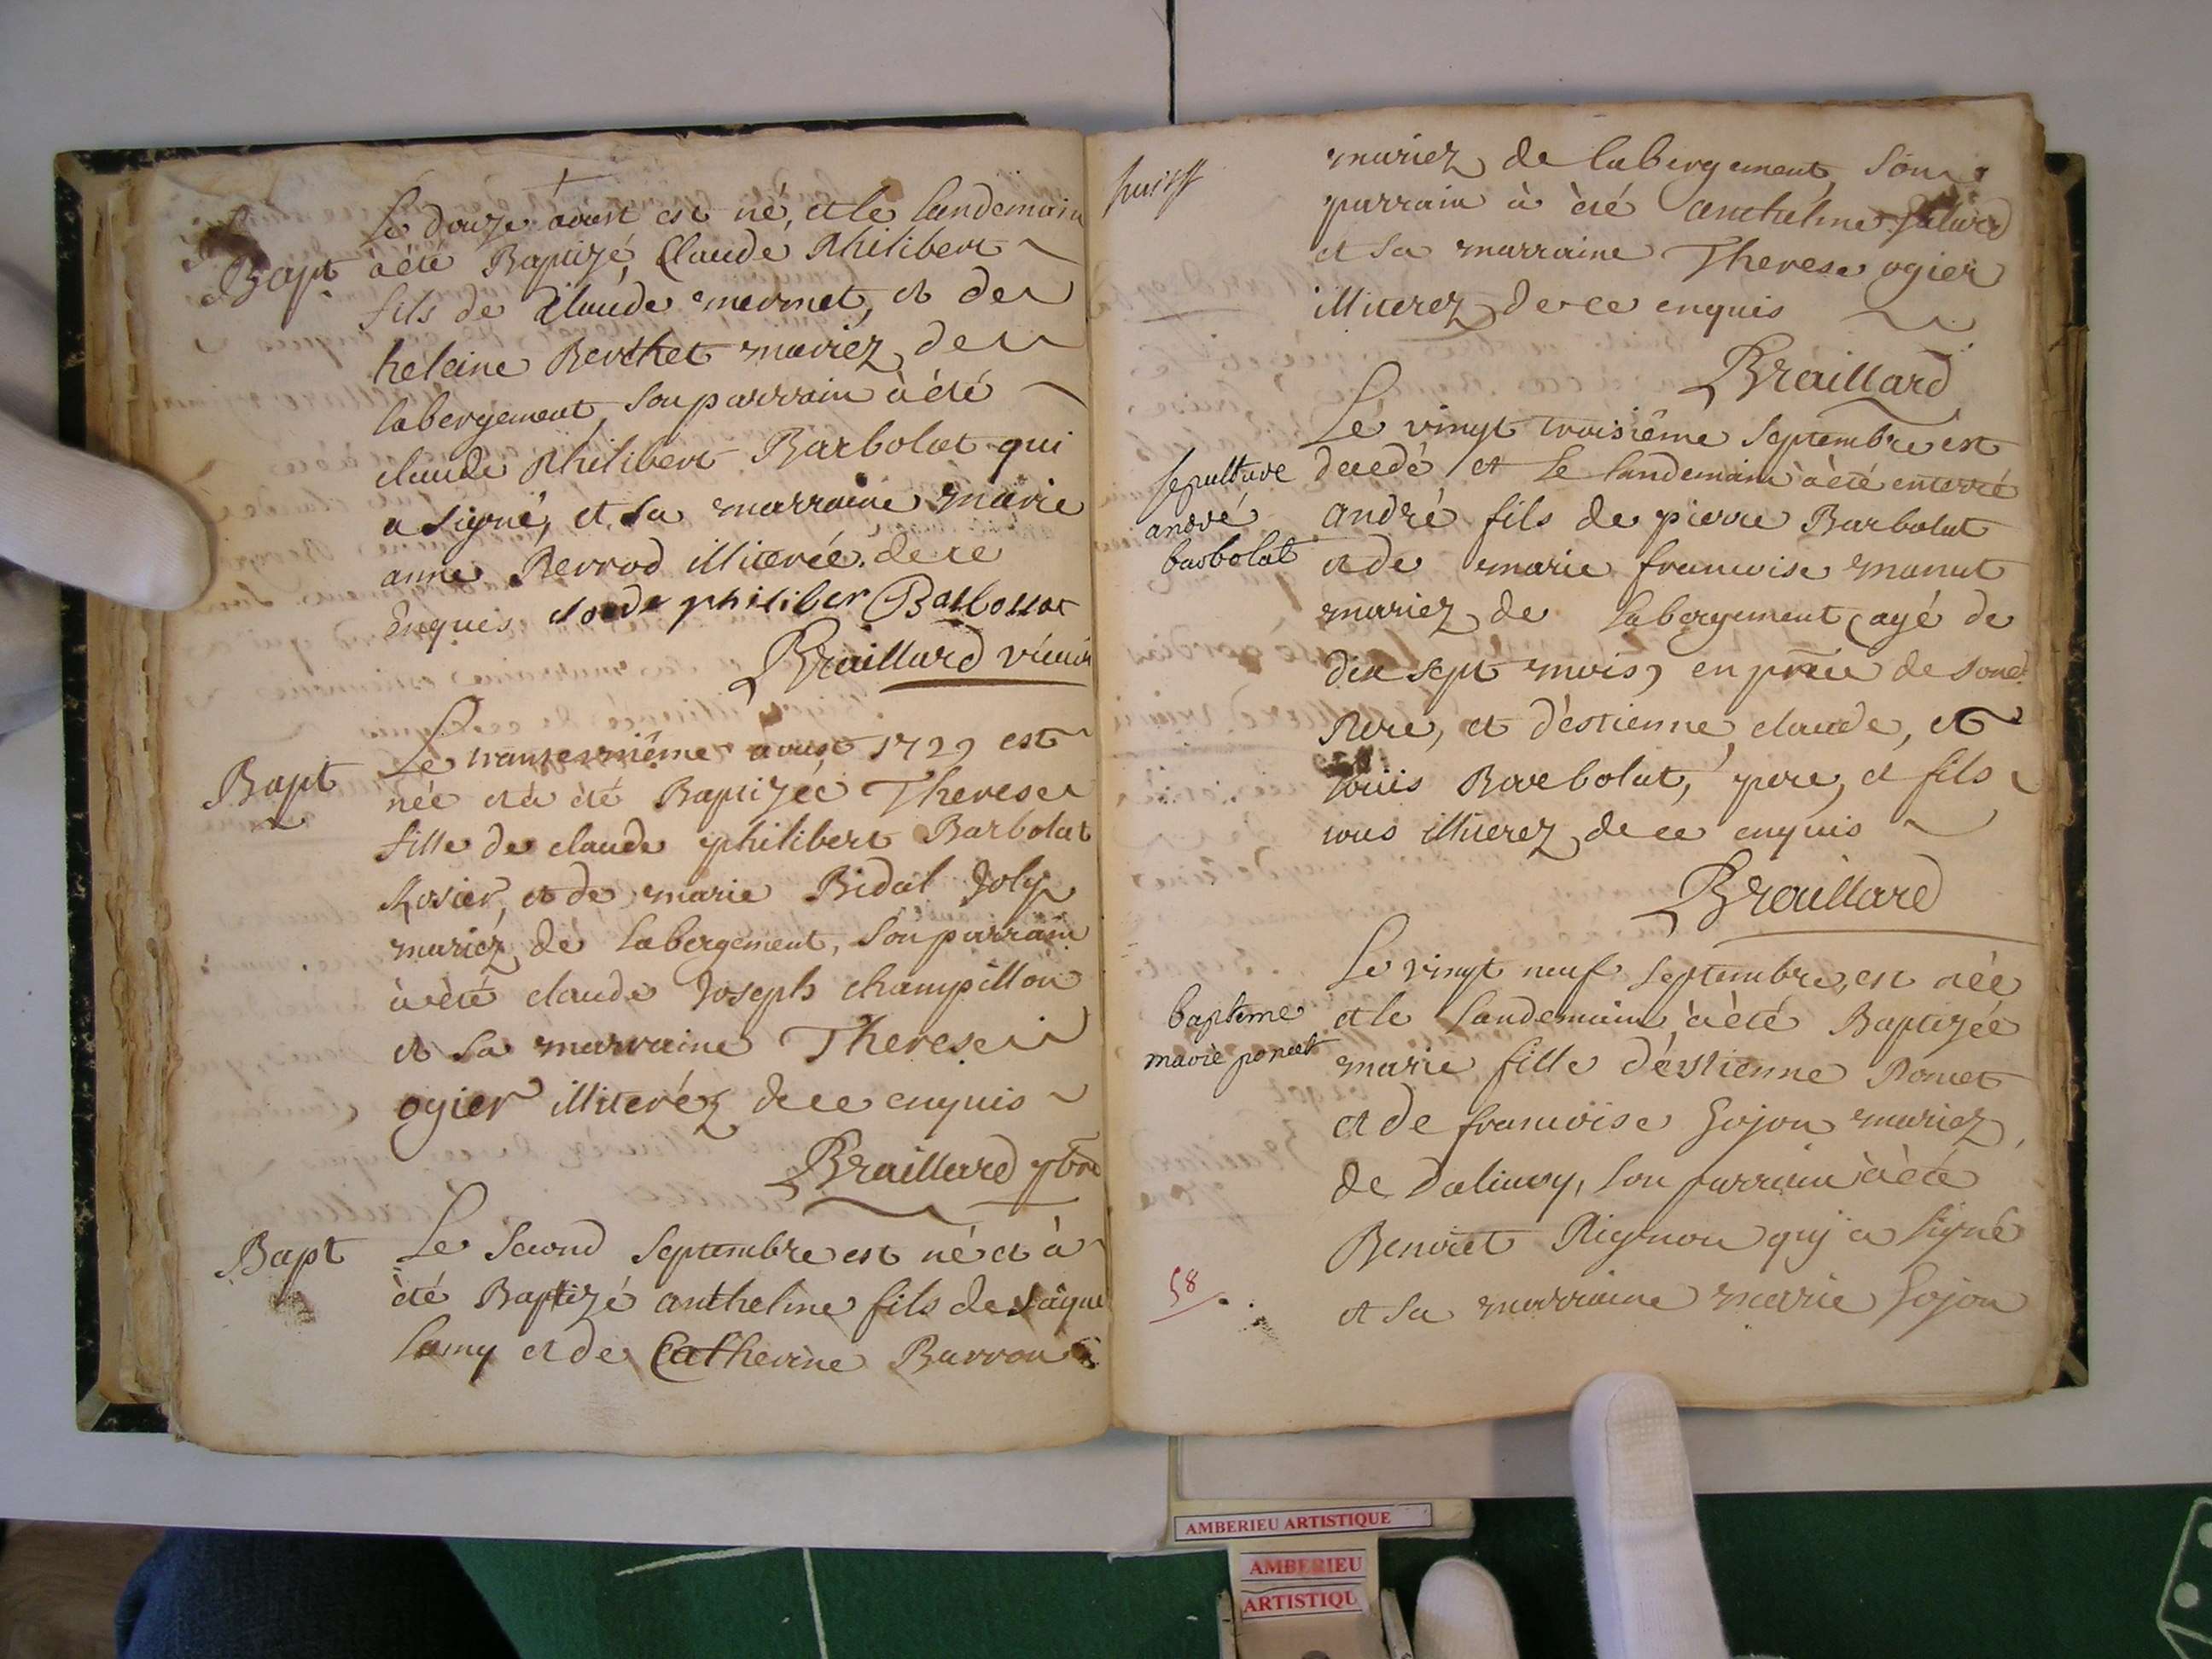 Le douze aoust est né, et le landemain
Bapt
à été Baptizé, Claude Philibert
fils de Claude mermet, et de
heleine Berthet mariéz de
labergement, son parrain à été
claude Philibert Barbolat qui
a signé, et sa marraine marie
anne Perrod illiterée de ce
enquis clode philiber Barbollat
Braillard vicaire
Le trantemiême aoust 1729 est
Bapt
née et à été Baptizée Therese
fille de claude philibert Barbolat
Rosier, et de marie Bidal Joly
mariéz de labergement, son parrain
à été claude Joseph champillon
et sa marraine Therese
ogier illiteréz de ce enquis
Braillard pbre
Bapt
Le second septembre est né et à
été Baptizé anthelme fils de Jâque
lamy et de Catherine Barron
mariez de labergement, son
parrain à été anthelme
et sa marraine Therese ogier
illiterez de ce enquis
Braillard
Le vingt troisiême septembre est
sepulture
andré
barbolat
decedé et le landemain à été enterré
andré fils de pierre Barbolat
et de marie francoise manut
mariez de labergement (agé de
dix sept mois) en pnce de sond
Pere, et d'estienne, claude, et
louis Barbolat, pere, et fils
tous illiterez de ce enquis
Braillard
Le vingt neuf septembre, est née
bapteme
marie poncet
et le landemain à été Baptizée
marie fille d'estienne Poncet
et de francoise Gojon mariez
de Dalivoy, son parrain à été
Benoict Pignon qui a signé
et sa marraine marie Gojon
58
AMBERIEU ARTISTIQUE
AMBERIEU
ARTISTIQU